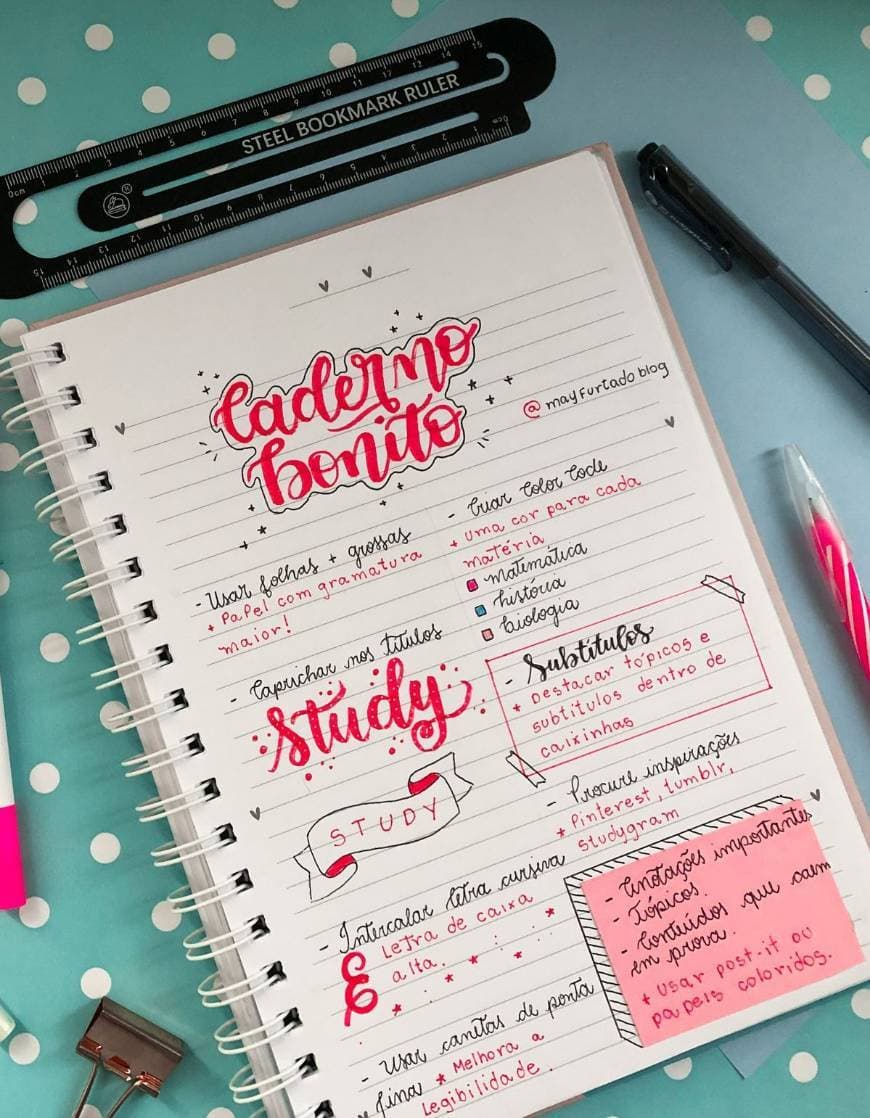 STEEL BOOKMARK RULER
Caderno
bonito
@mayfurtadoblog
- Usar folhas + grossas
+ Papel com gramatura
maior!
- Criar Color Code
+ uma cor para cada
matéria
matemática
história
biologia
- Caprichar nos títulos
Study
STUDY
- Subtítulos
* Destacar tópicos e
subtítulos dentro de
caixinhas
- Procure inspirações
* Pinterest, tumblr,
studygram
- Intercalar letra cursiva
E Letra de caixa
alta.
- Anotações importantes
- Tópicos.
- Conteúdos que caem
em prova.
+ usar post-it ou
papéis coloridos.
- Usar canetas de ponta
fina * Melhora a
legibilidade.